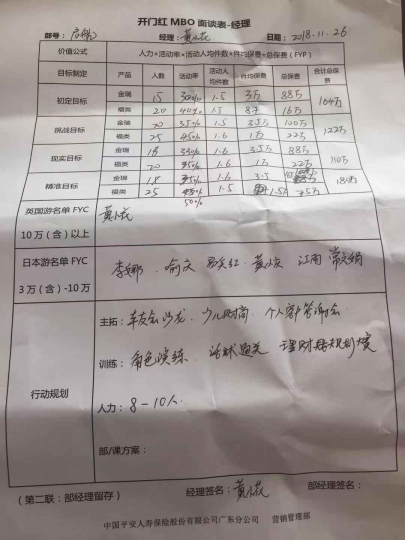 开门红 MBO 面谈表-经理
部号： 经理：黄小花 日期：2018.11.26
价值公式 人力×活动率×活动人均件数×件均保费=总保费（FYP）
目标制定 产品 人数 活动率 活动人均件数 件均保费 总保费 合计总保费
初定目标 金瑞 15 30% 1.5 3万 88万 104万
福类 20 40% 1.5 16万
挑战目标 金瑞 20 35% 1.5 3.5万 100万 122万
福类 25 45% 1.6 1万 22万
现实目标 金瑞 18 1.6 3.5 88万 110万
福类 20 1.6 1万 22万
精准目标 金瑞 18 1.6 3.5
福类 25 50% 1.5 1.5万
英国游名单 FYC 10 万（含）以上 黄小花
日本游名单 FYC 3 万（含）-10 万 李娜 喻庆 黄小庆 江南
行动规划
主拓：车友会沙龙、少儿财商、个人客户答谢会
训练：角色演练、话术通关
人力：8-10人.
部/课方案：
（第二联：部经理留存） 经理签名：黄小花 部经理签名：
中国平安人寿保险股份有限公司广东分公司 营销管理部